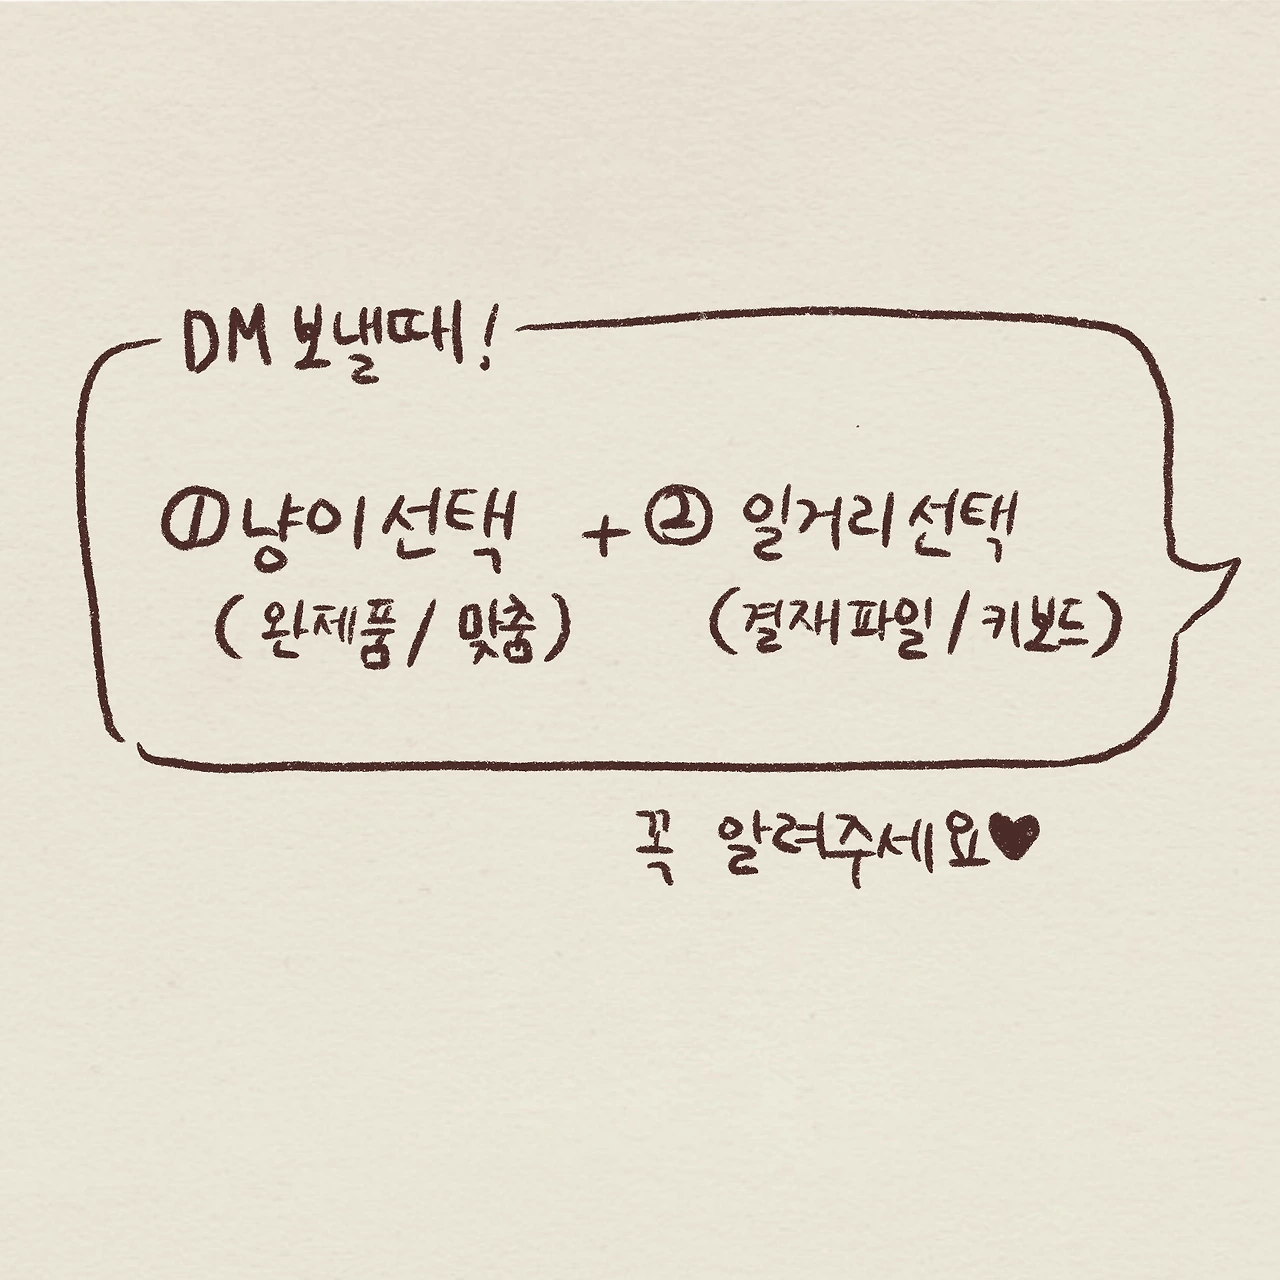 DM 보낼때!
①냥이 선택 + ② 일거리 선택
(완제품 / 맞춤) (결재파일 / 키보드)
꼭 알려주세요♥